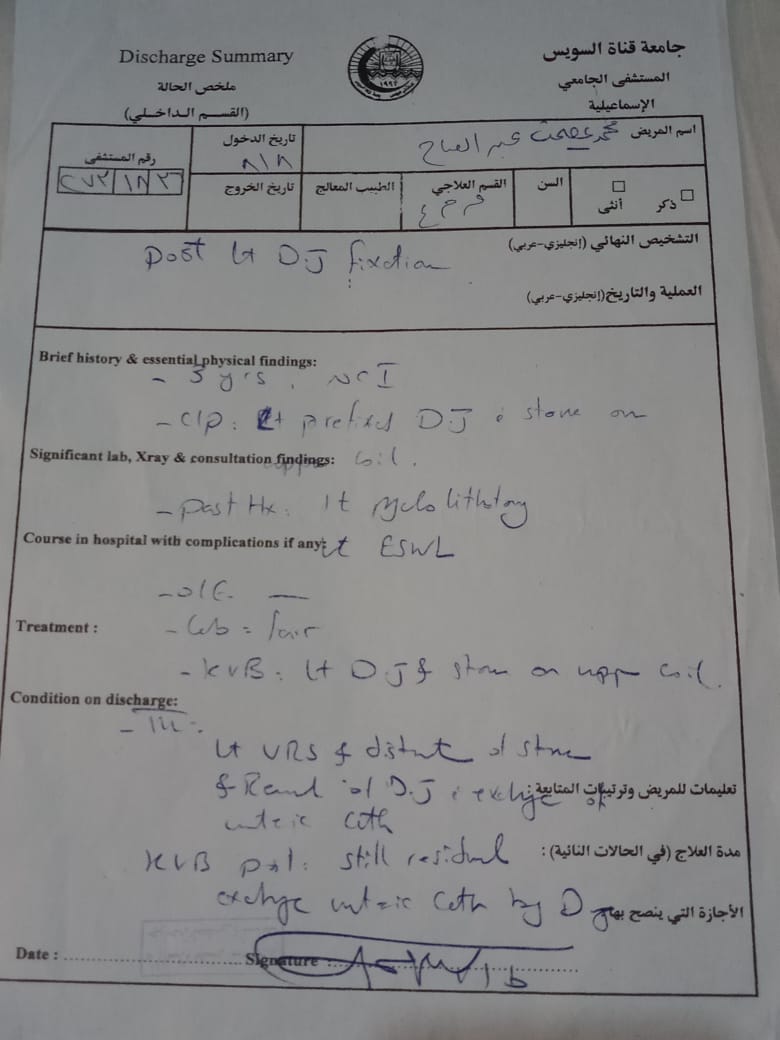 جامعة قناة السويس
المستشفى الجامعي
الإسماعيلية
Discharge Summary
ملخص الحالة
(القسم الداخلي)
اسم المريض محمد عصمت عبد الفتاح
تاريخ الدخول
٨/٨
رقم المستشفى
ذكر
أنثى
السن
القسم العلاجي
الطبيب المعالج
تاريخ الخروج
التشخيص النهائي (إنجليزي-عربي)
post Lt DJ fixation
العملية والتاريخ(إنجليزي-عربي)
Brief history & essential physical findings:
- 3 yrs, NCI
- C/P: Lt prefixed DJ c stone on
Significant lab, Xray & consultation findings: upper coil.
- past Hx: Lt pyelolithotomy
Course in hospital with complications if any: Lt ESWL
- O/E. —
Treatment :
- Lab = fair
- KUB: Lt DJ & stone on upper coil.
Condition on discharge:
- TTT:
Lt URS & disint of stone
& Removal of DJ & exchange of
تعليمات للمريض وترتيبات المتابعة:
ureteric cath
KUB post: still residual
مدة العلاج (في الحالات النائية) :
exchange ureteric cath by DJ
الأجازة التي ينصح بها
Date :
Signature :